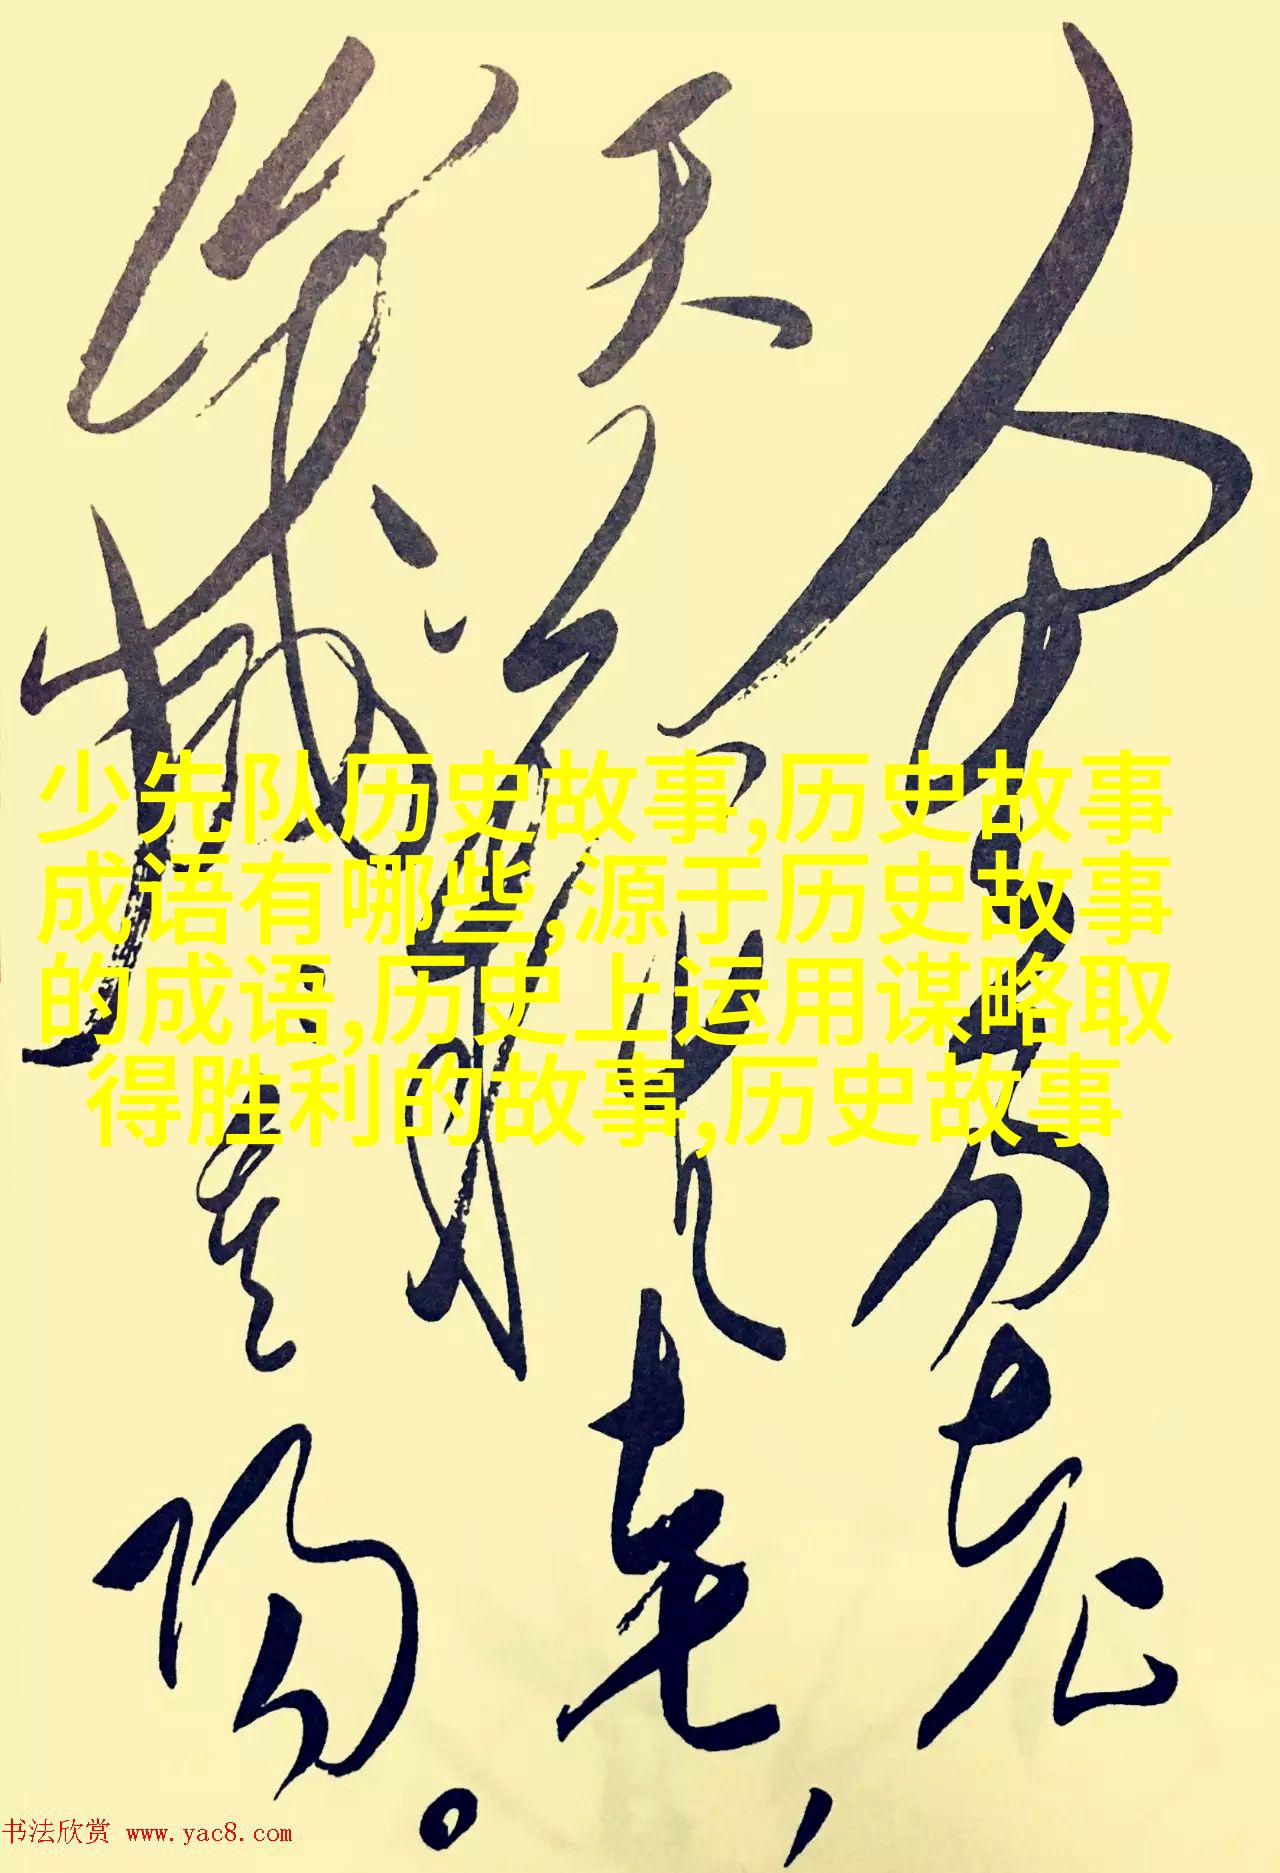 人生易老
天难老，
岁岁重阳。
少先队历史故事,历史故事
成语有哪些,源于历史故事
的成语,历史上运用谋略取
得胜利的故事,历史故事
书法欣赏 www.yac8.com